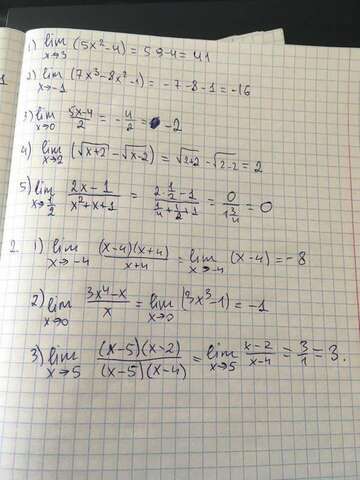 1) lim x→3 (5x²-4) = 5·9-4 = 41
2) lim x→-1 (7x³-8x²-1) = -7-8-1 = -16
3) lim x→0 (5x-4)/2 = -4/2 = -2
4) lim x→2 (√(x+2) - √(x-2)) = √(2+2) - √(2-2) = 2
5) lim x→1/2 (2x-1)/(x²+x+1) = (2·1/2-1)/(1/4+1/2+1) = 0/(1 3/4) = 0
2 1) lim x→-4 ((x-4)(x+4))/(x+4) = lim x→-4 (x-4) = -8
2) lim x→0 (3x⁴-x)/x = lim x→0 (3x³-1) = -1
3) lim x→5 ((x-5)(x-2))/((x-5)(x-4)) = lim x→5 (x-2)/(x-4) = 3/1 = 3.